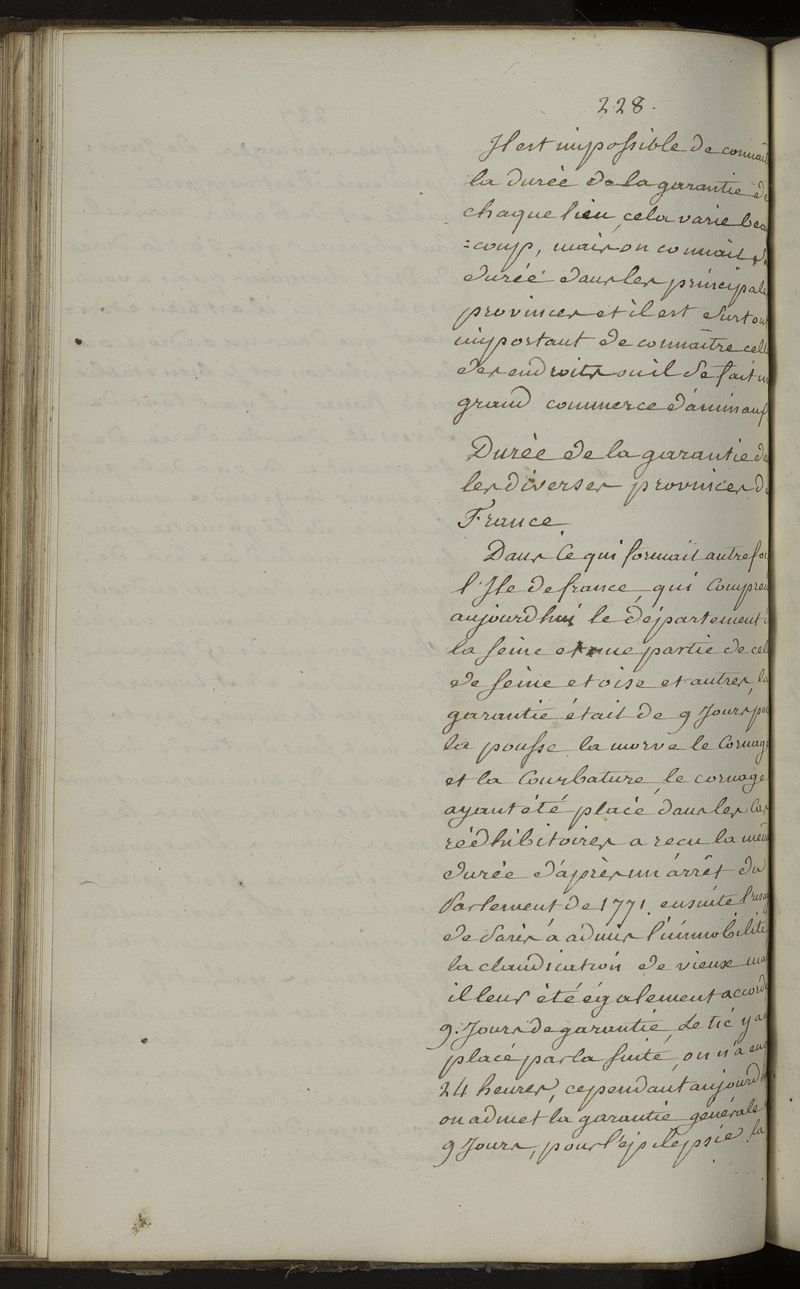 228.
Il est impossible de connait
la durée de la garantie de
chaque lieu, cela varie beau
=coup, mais on connait
durée dans les principale
provinces et il est surtou
important de connaître cell
des endroits ou il se fait un
grand commerce d'animau
Durée de la garantie da
les diverses provinces de
France.
Dans Ce qui formait autrefoi
l'Ile de france, qui Compren
aujourdhui le département d
la seine et une partie de cel
de seine et oise et autres, la
garantie était de 9 Jours po
la pousse la morve le Cornage
et la Courbature, le cornage
ayant été placé dans les Cas
rédhibitoires a recu la mêm
durée d'après un arrêt du
Parlement de 1771. ensuite l'usag
de Paris a admis l'immobilité
la claudication de vieux ma
il leur été également accordé
9. Jours de garantie, le tic y a
placé par la suite, on n'a eu
24 heures, cependant aujourd
on admet la garantie générale
9 Jours, pour l'épilepsie la